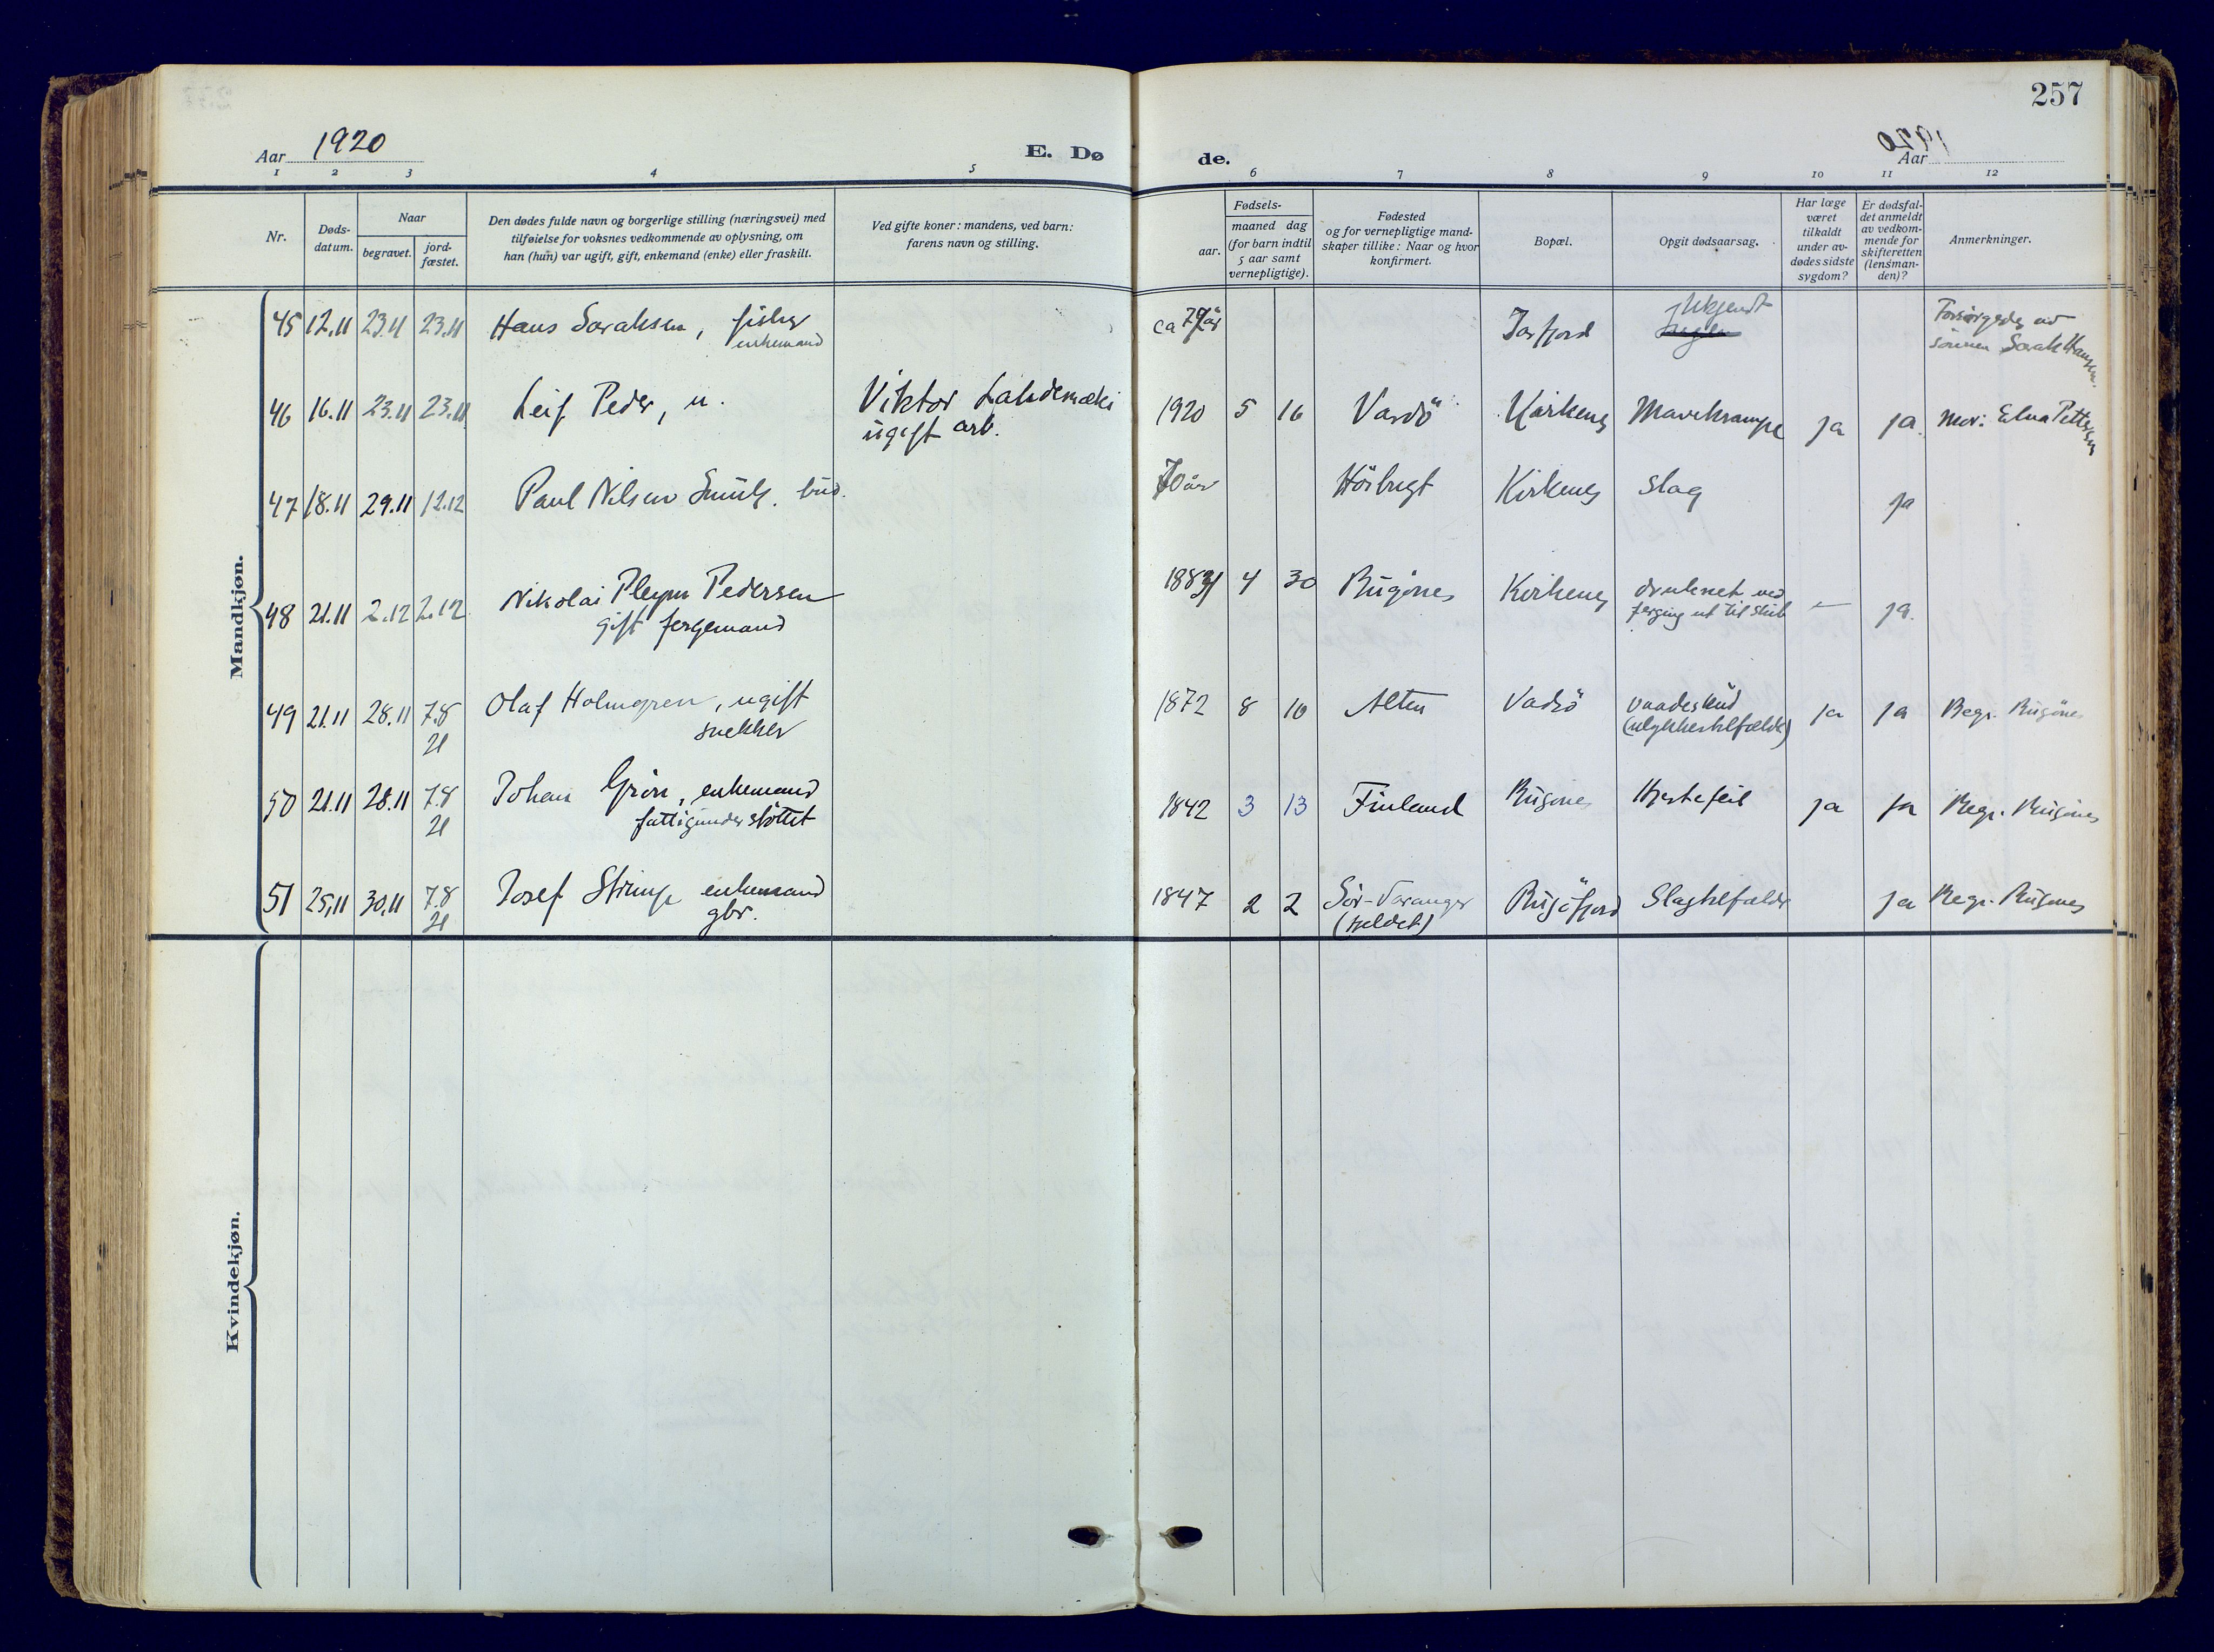 257
Aar 1920
E. Dø
de.
Aar 1920
1 2 3 4 5 6 7 8 9 10 11 12
Nr.
Døds-
datum.
Naar
begravet.
jord-
fæstet.
Den dødes fulde navn og borgerlige stilling (næringsvei) med
tilføielse for voksnes vedkommende av oplysning, om
han (hun) var ugift, gift, enkemand (enke) eller fraskilt.
Ved gifte koner: mandens, ved barn:
farens navn og stilling.
Fødsels-
aar.
maaned dag
(for barn indtil
5 aar samt
vernepligtige).
Fødested
og for vernepligtige mand-
skaper tillike: Naar og hvor
konfirmert.
Bopæl.
Opgit dødsaarsag.
Har læge
været
tilkaldt
under av-
dødes sidste
sygdom?
Er dødsfal-
det anmeldt
av vedkom-
mende for
skifteretten
(lensman-
den)?
Anmerkninger.
Mandkjøn.
45 12.11 23.11 23.11 Hans Saraksen, fisker
enkemand
ca 79 år Jarfjord
Ukjendt
Forsørgedes av
sönnen Sarak Hansen.
46 16.11 23.11 23.11 Leif Peder, u.
Viktor Lahdemæki
ugift arb.
1920 5 16 Vardö Kirkenes Mavekrampe ja ja. Mor: Elna Pettersen
47 18.11 29.11 12.12 Paul Nilsen
70 år Kirkenes Slag ja
48 21.11 2.12 2.12 Nikolai Pleym Pedersen
gift fergemand
4 30 Bugönes Kirkenes druknet ved
ferging ut til skib
— ja.
49 21.11 28.11 7.8
21
Olaf Holmgren, ugift
snekker
1872 8 10 Alten Vadsö vaadeskud
(ulykkestilfælde)
ja ja Begr. Bugönes
50 21.11 28.11 7.8
21
Johan Grön, enkemand
fattigunderstöttet
1842 3 13 Finland Bugönes Hjertefeil ja ja Begr. Bugönes
51 25.11 30.11 7.8
21
Josef Strimp enkemand
gbr.
1847 2 2 Sör-Varanger
Bugöfjord Slagtilfælde ja Begr. Bugönes
Kvindekjøn.